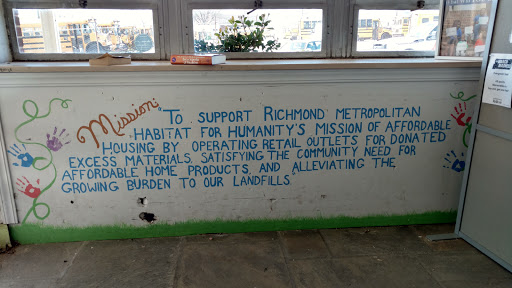 Mission: "To support Richmond Metropolitan
Habitat for Humanity's mission of affordable
housing by operating retail outlets for donated
excess materials, satisfying the community need for
affordable home products, and alleviating the
growing burden to our landfills.